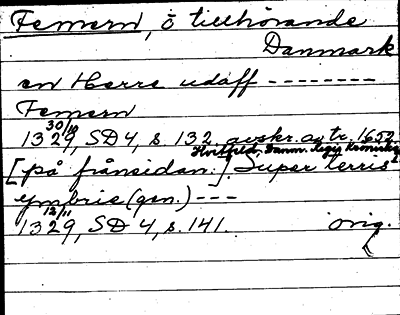 Femern, ö tillhörande
Danmark
en Herre udaff --------
Femern
30/10
1329, SD 4, s. 132. avskr. av tr. 1652
Hvitfeldt, Danm. Regis Krønike
[på frånsidan:] Super terris
ymbrie (gen.) ---
12/11
1329, SD 4, s. 141. orig.